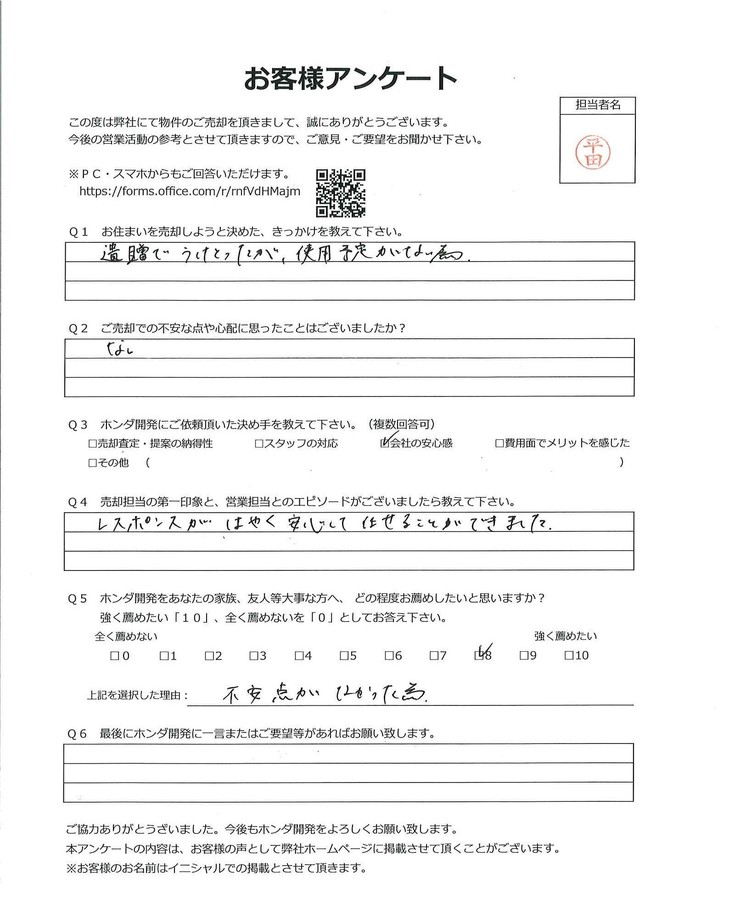 お客様アンケート
担当者名
平田
この度は弊社にて物件のご売却を頂きまして、誠にありがとうございます。
今後の営業活動の参考とさせて頂きますので、ご意見・ご要望をお聞かせ下さい。
※ＰＣ・スマホからもご回答いただけます。
https://forms.office.com/r/rnfVdHMajm
Ｑ１ お住まいを売却しようと決めた、きっかけを教えて下さい。
遺贈でうけとったが、使用予定がない為.
Ｑ２ ご売却での不安な点や心配に思ったことはございましたか？
なし
Ｑ３ ホンダ開発にご依頼頂いた決め手を教えて下さい。（複数回答可）
□売却査定・提案の納得性 □スタッフの対応 ☑会社の安心感 □費用面でメリットを感じた
□その他 （ ）
Ｑ４ 売却担当の第一印象と、営業担当とのエピソードがございましたら教えて下さい。
レスポンスが はやく 安心して 任せることができました.
Ｑ５ ホンダ開発をあなたの家族、友人等大事な方へ、 どの程度お薦めしたいと思いますか？
強く薦めたい「１０」、全く薦めないを「０」としてお答え下さい。
全く薦めない 強く薦めたい
□0 □1 □2 □3 □4 □5 □6 □7 ☑8 □9 □10
上記を選択した理由： 不安点が なかった為.
Ｑ６ 最後にホンダ開発に一言またはご要望等があればお願い致します。
ご協力ありがとうざいました。今後もホンダ開発をよろしくお願い致します。
本アンケートの内容は、お客様の声として弊社ホームページに掲載させて頂くことがございます。
※お客様のお名前はイニシャルでの掲載とさせて頂きます。